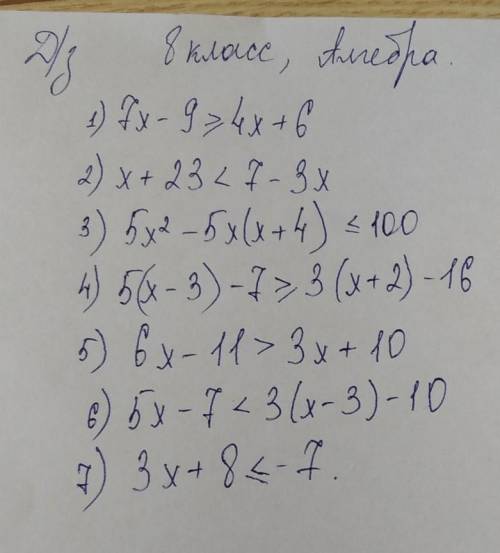 Д/з 8 класс, Алгебра.
1) 7x - 9 ⩾ 4x + 6
2) x + 23 < 7 - 3x
3) 5x² - 5x(x + 4) ≤ 100
4) 5(x - 3) - 7 ⩾ 3(x + 2) - 16
5) 6x - 11 > 3x + 10
6) 5x - 7 < 3(x - 3) - 10
7) 3x + 8 ≤ -7.